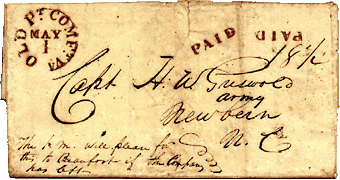 OLD PT. COMFT.
MAY
1
VA
PAID
PAID
18¾
Capt H. W. Griswold
army
Newbern
N. C
The P. M. will please for
this to Beaufort if the Company
has left